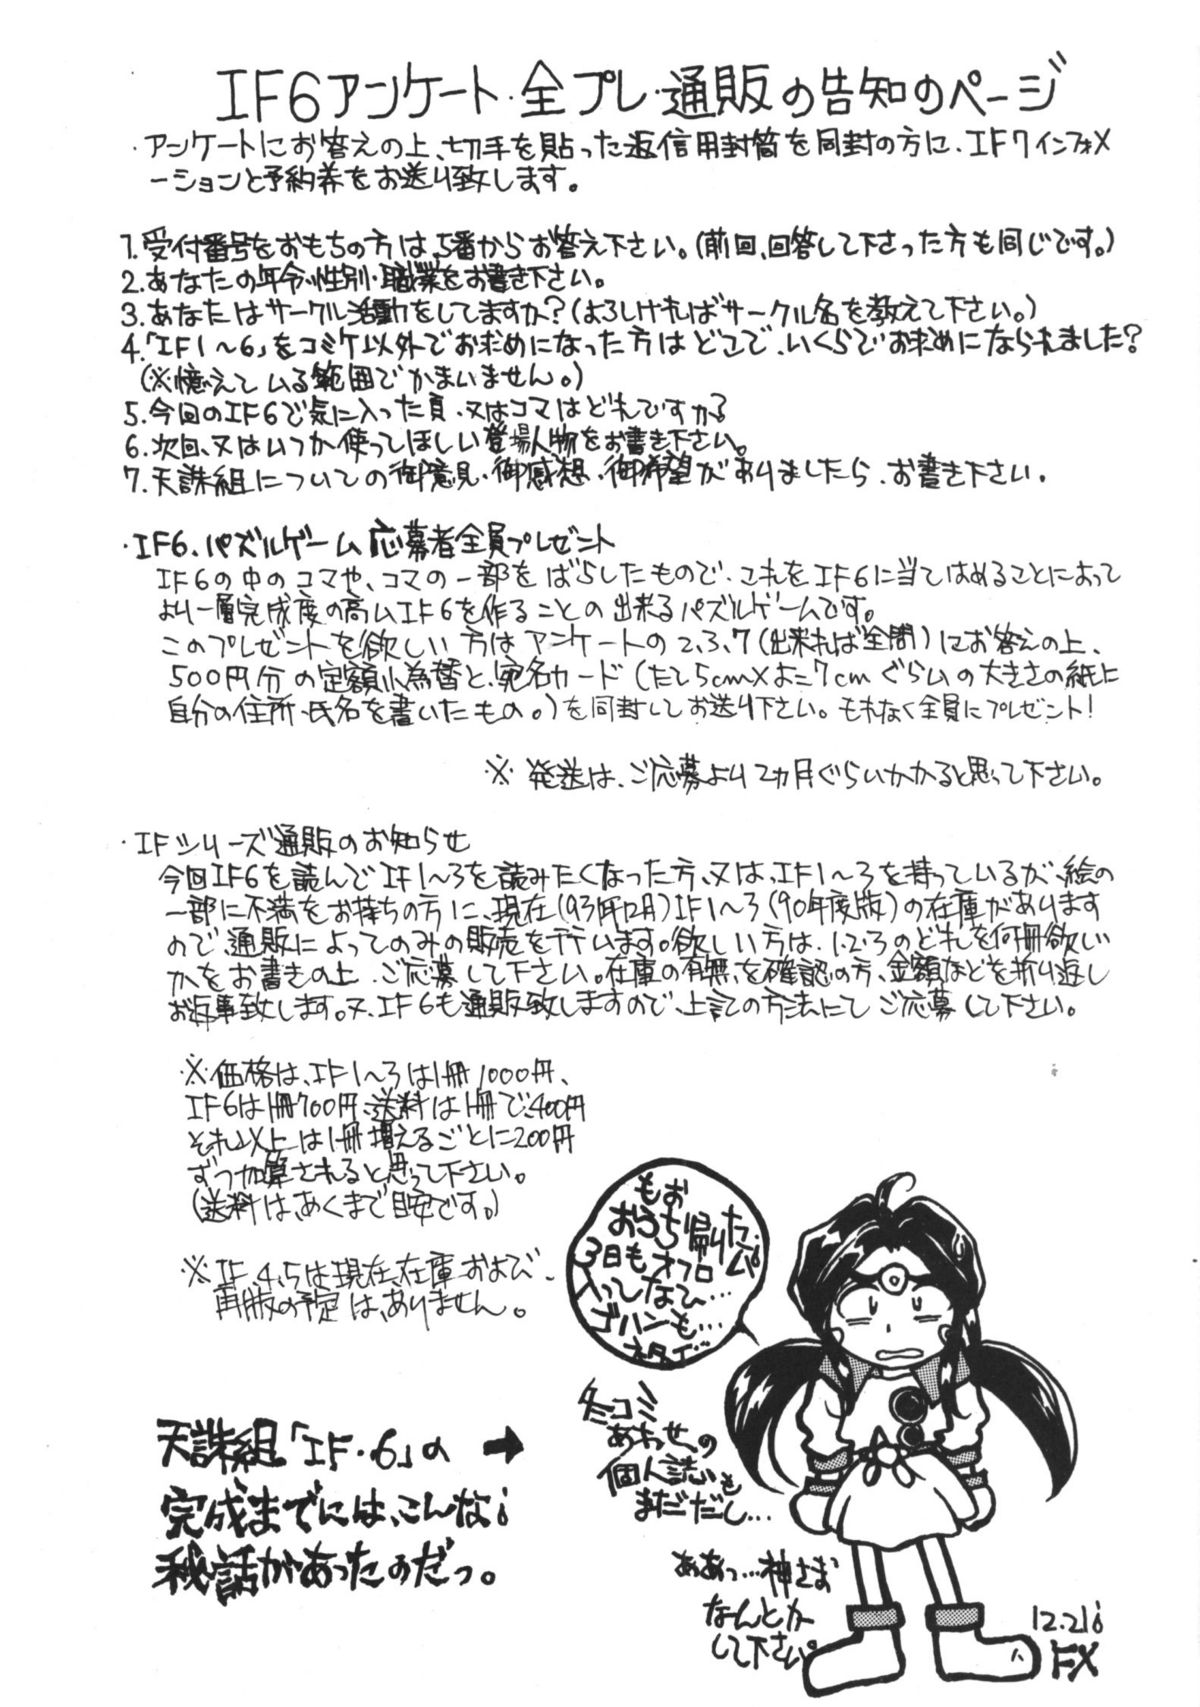 IF6アンケート・全プレ・通販の告知のページ
・アンケートにお答えの上、切手を貼った返信用封筒を同封の方に、IF7インフォメ
ーションと予約券をお送り致します。
1.受付番号をおもちの方は、5番からお答え下さい。(前回、回答して下さった方も同じです。)
2.あなたの年令・性別・職業をお書き下さい。
3.あなたはサークル活動をしてますか?(よろしければサークル名を教えて下さい。)
4.「IF1〜6」をコミケ以外でお求めになった方はどこで、いくらでお求めになられました?
(※憶えている範囲でかまいません。)
5.今回のIF6で気に入った頁、又はコマはどれですか?
6.次回、又はいつか使ってほしい登場人物をお書き下さい。
7.天誅組についての御意見・御感想・御希望がありましたら、お書き下さい。
・IF6、パズルゲーム応募者全員プレゼント
IF6の中のコマや、コマの一部をばらしたもので、これをIF6に当てはめることによって
より一層完成度の高いIF6を作ることの出来るパズルゲームです。
このプレゼントを欲しい方はアンケートの2、3、7(出来れば全問)にお答えの上、
500円分の定額小為替と、宛名カード(たて5cm×よこ7cmぐらいの大きさの紙に
自分の住所・氏名を書いたもの。)を同封してお送り下さい。もれなく全員にプレゼント!
※発送は、ご応募より2ヵ月ぐらいかかると思って下さい。
・IFシリーズ通販のお知らせ
今回IF6を読んでIF1〜3を読みたくなった方、又は、IF1〜3を持っているが、絵の
一部に不満をお持ちの方に、現在(93年12月)IF1〜3(90年度版)の在庫があります
ので、通販によってのみの販売を行います。欲しい方は、1.2.3のどれを何冊欲しい
かをお書きの上、ご応募して下さい。在庫の有無を確認の方、金額などを折り返し
お返事致します。又、IF6も通販致しますので、上記の方法にてご応募して下さい。
※価格は、IF1〜3は1冊1000円、
IF6は1冊700円、送料は1冊で、400円
それ以上は1冊増えるごとに200円
ずつ加算されると思って下さい。
(送料は、あくまで目安です。)
※IF、4、5は現在、在庫および、
再版の予定は、ありません。
もお
おうち帰りたい
3日もオフロ
入ってないひ…
ゴハンも…
冬コミ
あわせの
個人誌も
まだだし…
ああっ…神さま
なんとか
して下さい。
天誅組「IF・6」の➡
完成までには、こんな
秘話があったのだっ。
12.21
FX